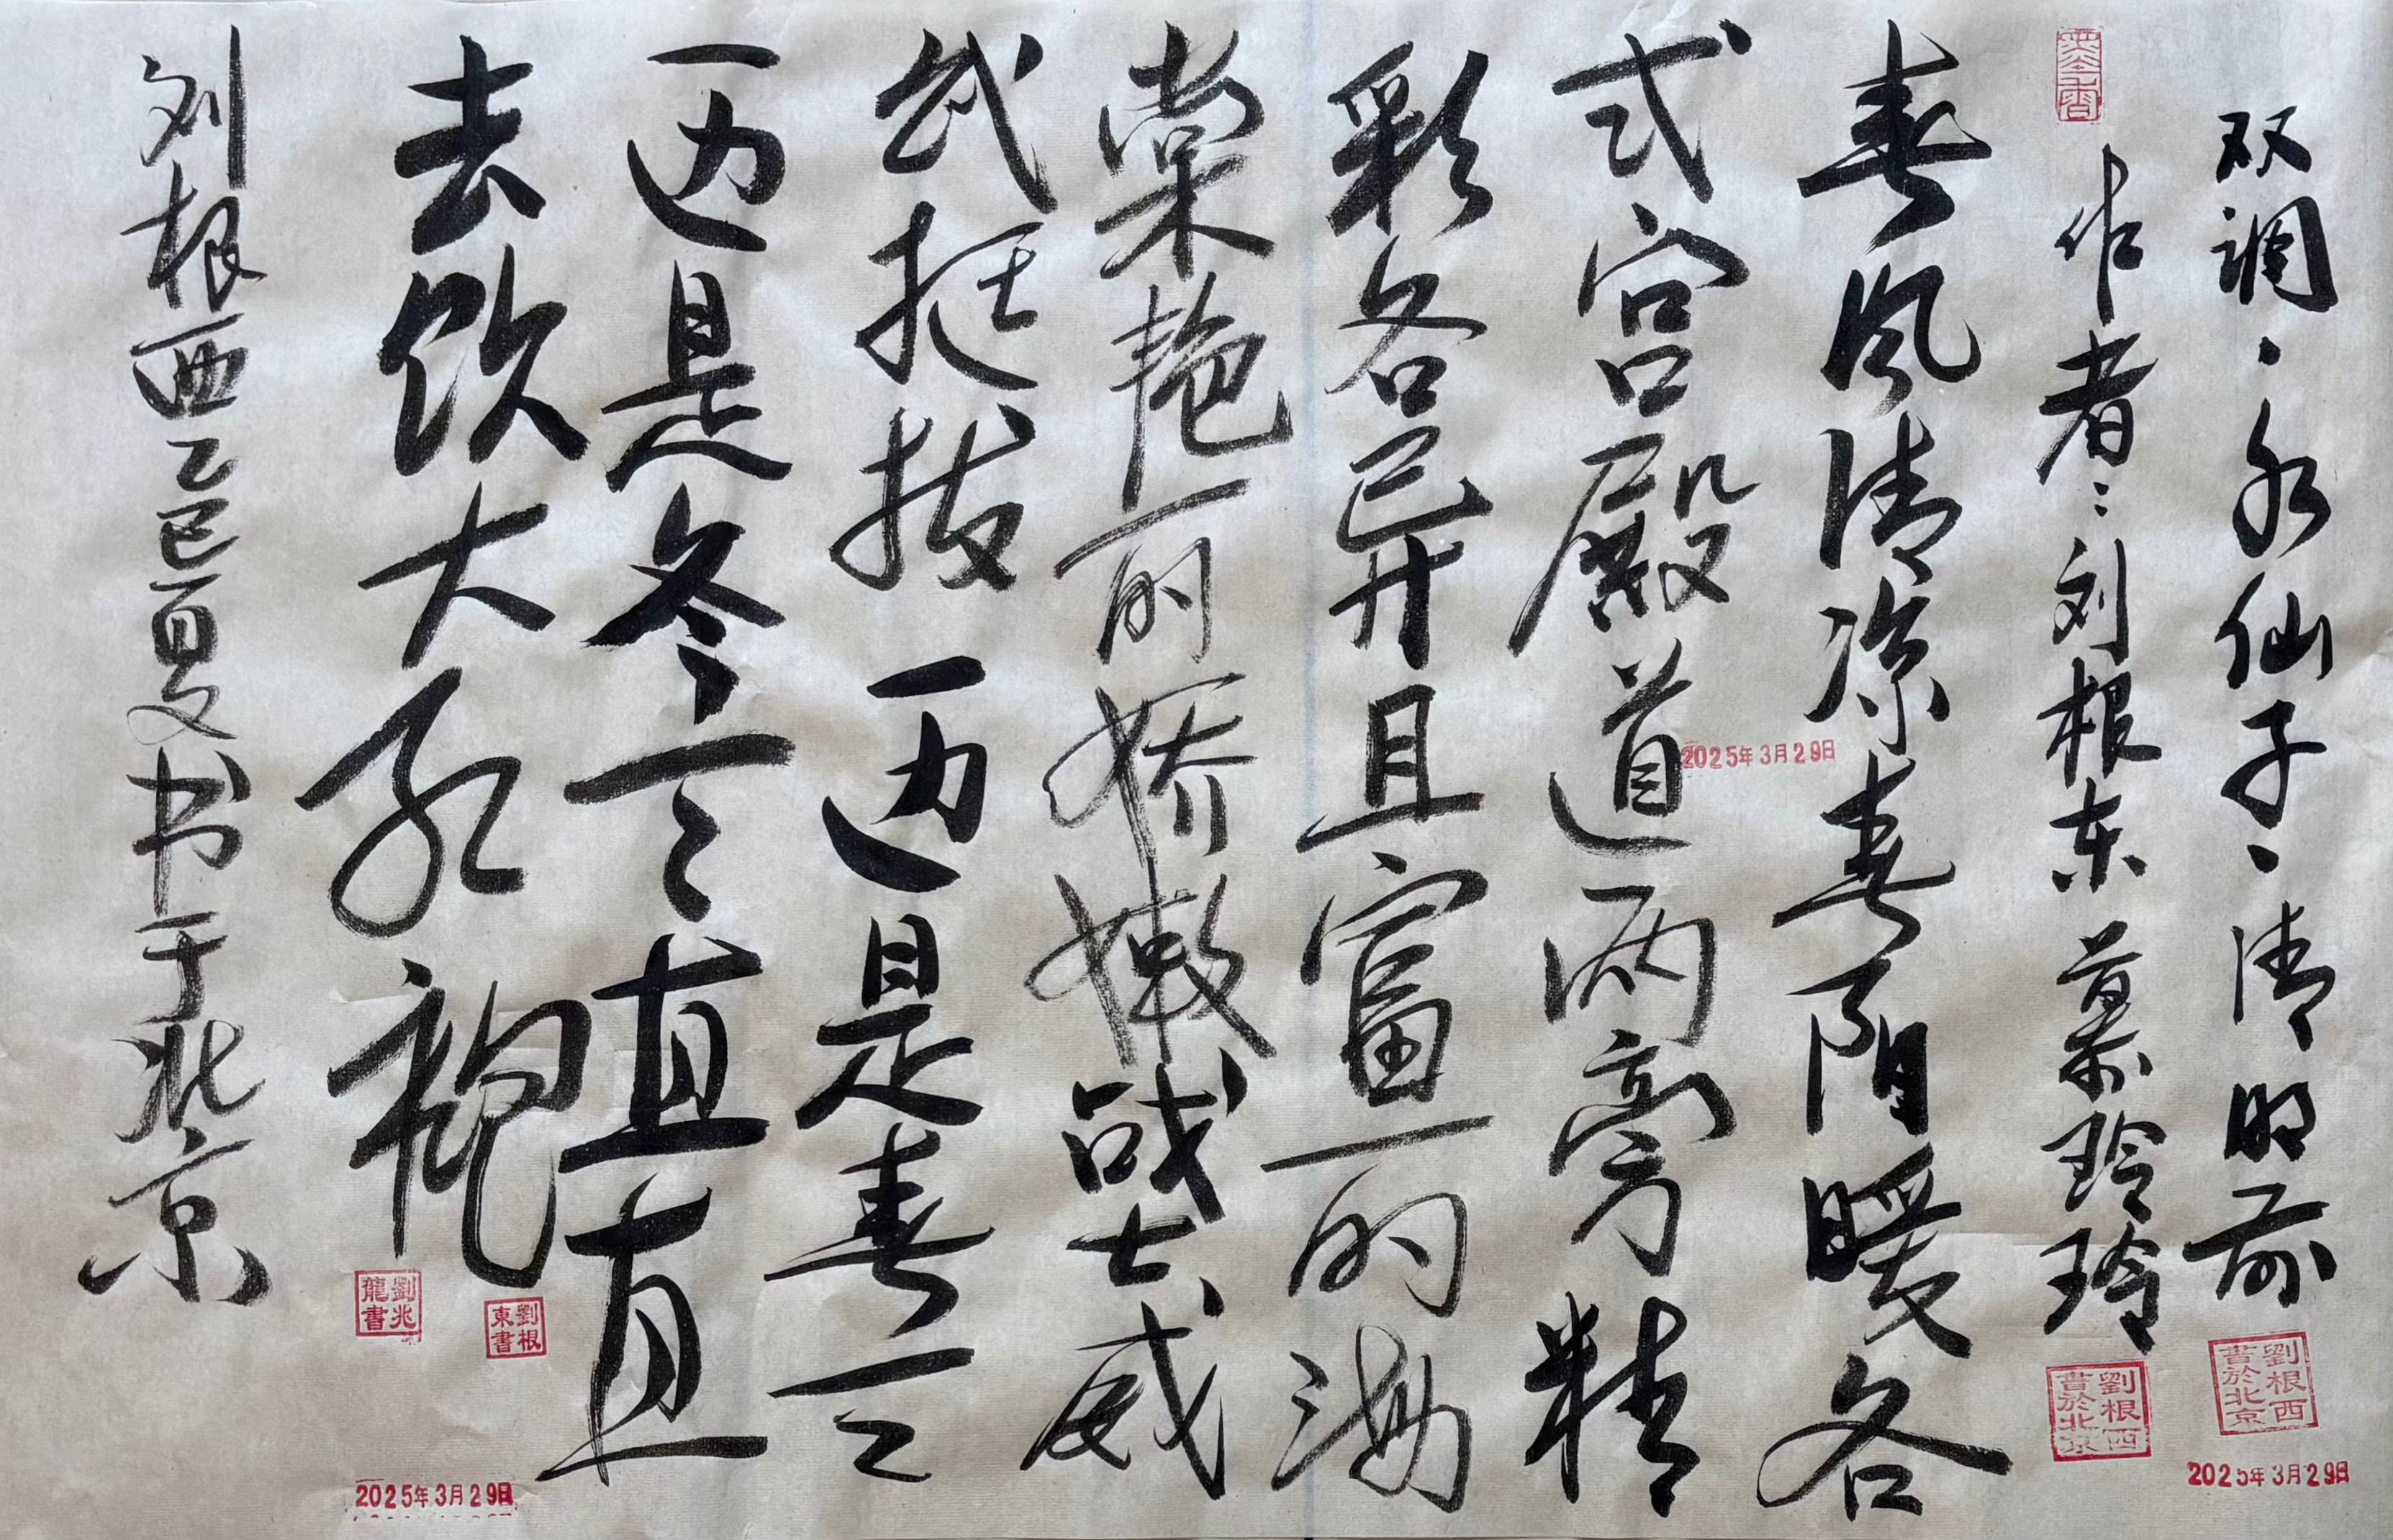 双调·水仙子·清明前
劉根西書於北京
2025年3月29日
墨香
作者：刘根东 慕玲玲
劉根西書於北京
春风清凉春阳暖各
2025年3月29日
式宫殿道两旁精
彩各异且富丽海
棠艳丽娇嫩战士威
武挺拔一边是春
一边是冬直直
去饮大红袍
劉根東書
劉兆龍書
2025年3月29日
刘根西乙巳夏书于北京